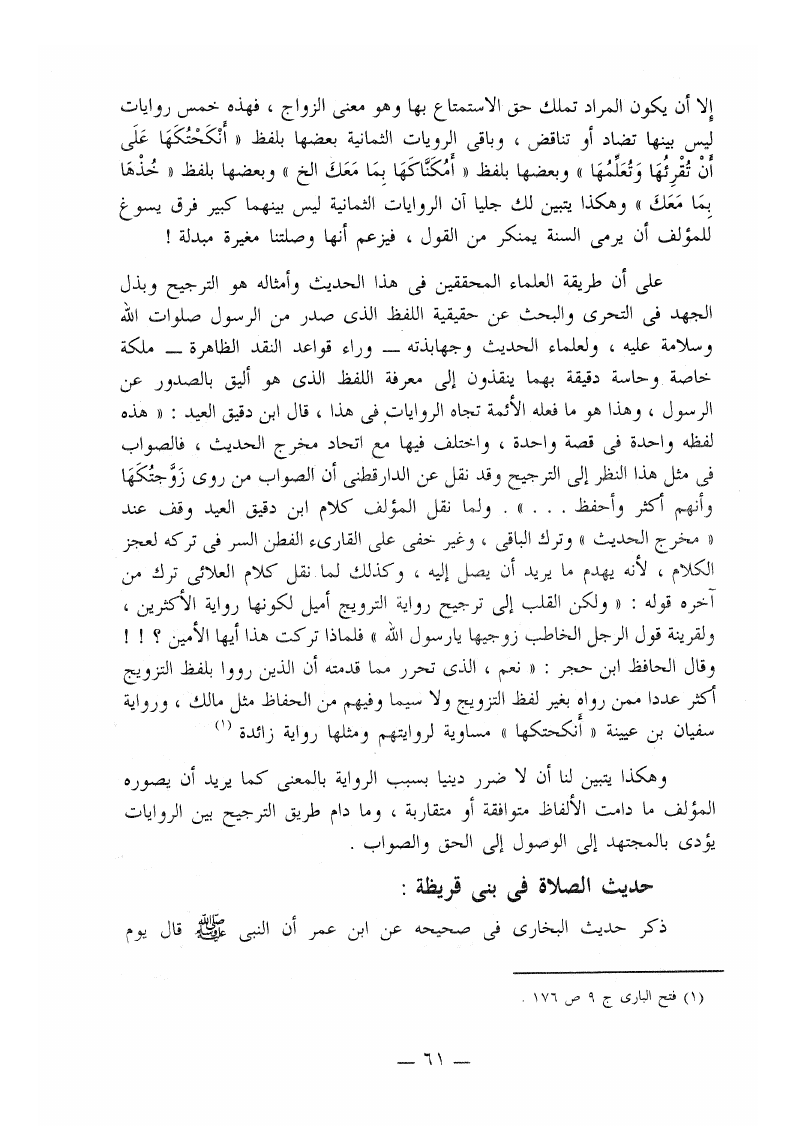 إلا أن يكون المراد تملك حق الاستمتاع بها وهو معنى الزواج ، فهذه خمس روايات
ليس بينها تضاد أو تناقض ، وباقى الرويات الثمانية بعضها بلفظ « أَنْكَحْتُكَهَا عَلَى
أَنْ تُقْرِئُهَا وَتُعَلِّمُهَا » وبعضها بلفظ « أَمْكَنَّاكَهَا بِمَا مَعَكَ الخ » وبعضها بلفظ « خُذْهَا
بِمَا مَعَكَ » وهكذا يتبين لك جليا آن الروايات الثمانية ليس بينهما كبير فرق يسوغ
للمؤلف أن يرمى السنة يمنكر من القول ، فيزعم أنها وصلتنا مغيرة مبدلة !
على أن طريقة العلماء المحققين فى هذا الحديث وأمثاله هو الترجيح وبذل
الجهد فى التحرى والبحث عن حقيقية اللفظ الذى صدر من الرسول صلوات الله
وسلامة عليه ، ولعلماء الحديث وجهابذته — وراء قواعد النقد الظاهرة — ملكة
خاصة وحاسة دقيقة بهما ينقذون إلى معرفة اللفظ الذى هو أليق بالصدور عن
الرسول ، وهذا هو ما فعله الأئمة تجاه الروايات فى هذا ، قال ابن دقيق العيد : « هذه
لفظه واحدة فى قصة واحدة ، واختلف فيها مع اتحاد مخرج الحديث ، فالصواب
فى مثل هذا النظر إلى الترجيح وقد نقل عن الدارقطنى أن الصواب من روى زَوَّجتُكَهَا
وأنهم أكثر وأحفظ . . . » . ولما نقل المؤلف كلام ابن دقيق العيد وقف عند
« مخرج الحديث » وترك الباقى ، وغير خفى على القارىء الفطن السر فى تركه لعجز
الكلام ، لأنه يهدم ما يريد أن يصل إليه ، وكذلك لما نقل كلام العلائى ترك من
آخره قوله : « ولكن القلب إلى ترجيح رواية الترويج أميل لكونها رواية الأكثرين ،
ولقرينة قول الرجل الخاطب زوجيها يارسول الله » فلماذا تركت هذا أيها الأمين ؟ ! !
وقال الحافظ ابن حجر : « نعم ، الذى تحرر مما قدمته أن الذين رووا بلفظ التزويج
أكثر عددا ممن رواه بغير لفظ التزويج ولا سيما وفيهم من الحفاظ مثل مالك ، ورواية
سفيان بن عيينة « أَنكحتكها » مساوية لروايتهم ومثلها رواية زائدة (١)
وهكذا يتبين لنا أن لا ضرر دينيا بسبب الرواية بالمعنى كما يريد أن يصوره
المؤلف ما دامت الألفاظ متوافقة أو متقاربة ، وما دام طريق الترجيح بين الروايات
يؤدى بالمجتهد إلى الوصول إلى الحق والصواب .
حديث الصلاة فى بنى قريظة :
ذكر حديث البخارى فى صحيحه عن ابن عمر أن النبى ﷺ قال يوم
(١) فتح البارى ج ٩ ص ١٧٦ .
— ٦١ —